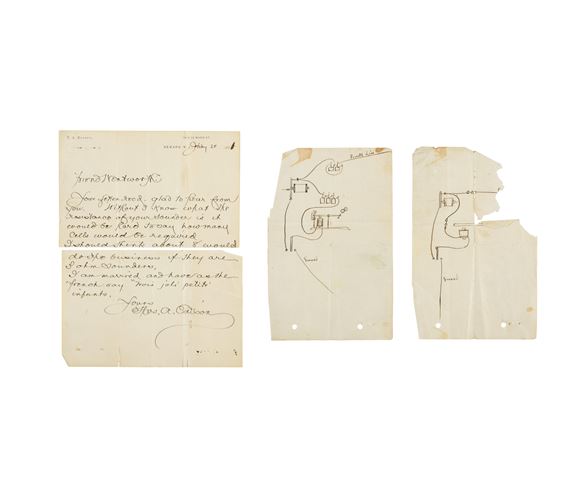 T. A. Edison,
Newark, N. J.
Friend Wentworth
Your favor recd. glad to hear from
you. Without I know what the
resistance of your sounder is it
would be hard to say how many
cells would be required
I should think about 8 would
do the business if they are
5 ohm sounders.
I am married and have as the
french say "trois joli petits
infants.
Yours
Thos. A. Edison
Ground
Ground